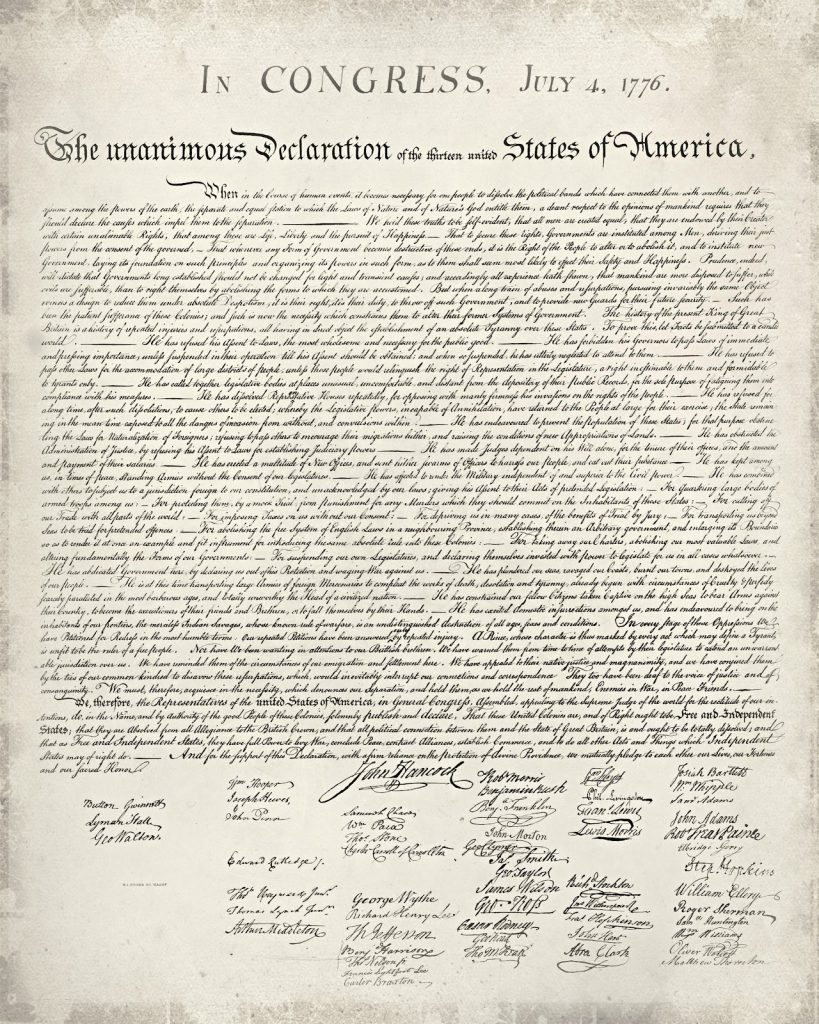 IN CONGRESS, JULY 4, 1776.
The unanimous Declaration of the thirteen united States of America,
When in the Course of human events, it becomes necessary for one people to dissolve the political bands which have connected them with another, and to
assume among the powers of the earth, the separate and equal station to which the Laws of Nature and of Nature's God entitle them, a decent respect to the opinions of mankind requires that they
should declare the causes which impel them to the separation. — We hold these truths to be self-evident, that all men are created equal, that they are endowed by their Creator
with certain unalienable Rights, that among these are Life, Liberty and the pursuit of Happiness.— That to secure these rights, Governments are instituted among Men, deriving their just
powers from the consent of the governed, — That whenever any Form of Government becomes destructive of these ends, it is the Right of the People to alter or to abolish it, and to institute new
Government, laying its foundation on such principles and organizing its powers in such form, as to them shall seem most likely to effect their Safety and Happiness. Prudence, indeed,
will dictate that Governments long established should not be changed for light and transient causes; and accordingly all experience hath shewn, that mankind are more disposed to suffer, while
evils are sufferable, than to right themselves by abolishing the forms to which they are accustomed. But when a long train of abuses and usurpations, pursuing invariably the same Object
evinces a design to reduce them under absolute Despotism, it is their right, it is their duty, to throw off such Government, and to provide new Guards for their future security. — Such has
been the patient sufferance of these Colonies; and such is now the necessity which constrains them to alter their former Systems of Government. The history of the present King of Great
Britain is a history of repeated injuries and usurpations, all having in direct object the establishment of an absolute Tyranny over these States. To prove this, let Facts be submitted to a candid
world. — He has refused his Assent to Laws, the most wholesome and necessary for the public good. — He has forbidden his Governors to pass Laws of immediate
and pressing importance, unless suspended in their operation till his Assent should be obtained; and when so suspended, he has utterly neglected to attend to them. — He has refused to
pass other Laws for the accommodation of large districts of people, unless those people would relinquish the right of Representation in the Legislature, a right inestimable to them and formidable
to tyrants only. — He has called together legislative bodies at places unusual, uncomfortable, and distant from the depository of their public Records, for the sole purpose of fatiguing them into
compliance with his measures. — He has dissolved Representative Houses repeatedly, for opposing with manly firmness his invasions on the rights of the people. — He has refused for
a long time, after such dissolutions, to cause others to be elected; whereby the Legislative powers, incapable of Annihilation, have returned to the People at large for their exercise; the State remain-
ing in the mean time exposed to all the dangers of invasion from without, and convulsions within. — He has endeavoured to prevent the population of these States; for that purpose obstruc-
ting the Laws for Naturalization of Foreigners; refusing to pass others to encourage their migrations hither, and raising the conditions of new Appropriations of Lands. — He has obstructed the
Administration of Justice, by refusing his Assent to Laws for establishing Judiciary powers. — He has made Judges dependent on his Will alone, for the tenure of their offices, and the amount
and payment of their salaries. — He has erected a multitude of New Offices, and sent hither swarms of Officers to harrass our people, and eat out their substance. — He has kept among
us, in times of peace, Standing Armies without the Consent of our legislatures. — He has affected to render the Military independent of and superior to the Civil power. — He has combined
with others to subject us to a jurisdiction foreign to our constitution, and unacknowledged by our laws; giving his Assent to their Acts of pretended Legislation: — For Quartering large bodies of
armed troops among us: — For protecting them, by a mock Trial, from punishment for any Murders which they should commit on the Inhabitants of these States: — For cutting off
our Trade with all parts of the world: — For imposing Taxes on us without our Consent: — For depriving us in many cases, of the benefits of Trial by Jury: — For transporting us beyond
Seas to be tried for pretended offences — For abolishing the free System of English Laws in a neighbouring Province, establishing therein an Arbitrary government, and enlarging its Boundaries
so as to render it at once an example and fit instrument for introducing the same absolute rule into these Colonies: — For taking away our Charters, abolishing our most valuable Laws, and
altering fundamentally the Forms of our Governments: — For suspending our own Legislatures, and declaring themselves invested with power to legislate for us in all cases whatsoever. —
He has abdicated Government here, by declaring us out of his Protection and waging War against us. — He has plundered our seas, ravaged our Coasts, burnt our towns, and destroyed the lives
of our people. — He is at this time transporting large Armies of foreign Mercenaries to compleat the works of death, desolation and tyranny, already begun with circumstances of Cruelty & perfidy
scarcely paralleled in the most barbarous ages, and totally unworthy the Head of a civilized nation. — He has constrained our fellow Citizens taken Captive on the high Seas to bear Arms against
their Country, to become the executioners of their friends and Brethren, or to fall themselves by their Hands. — He has excited domestic insurrections amongst us, and has endeavoured to bring on the
inhabitants of our frontiers, the merciless Indian Savages, whose known rule of warfare, is an undistinguished destruction of all ages, sexes and conditions. In every stage of these Oppressions We
have Petitioned for Redress in the most humble terms: Our repeated Petitions have been answered only by repeated injury. A Prince, whose character is thus marked by every act which may define a Tyrant,
is unfit to be the ruler of a free people. Nor have We been wanting in attentions to our Brittish brethren. We have warned them from time to time of attempts by their legislature to extend an unwarrant-
able jurisdiction over us. We have reminded them of the circumstances of our emigration and settlement here. We have appealed to their native justice and magnanimity, and we have conjured them
by the ties of our common kindred to disavow these usurpations, which, would inevitably interrupt our connections and correspondence. They too have been deaf to the voice of justice and of
consanguinity. We must, therefore, acquiesce in the necessity, which denounces our Separation, and hold them, as we hold the rest of mankind, Enemies in War, in Peace Friends. —
We, therefore, the Representatives of the united States of America, in General Congress, Assembled, appealing to the Supreme Judge of the world for the rectitude of our in-
tentions, do, in the Name, and by Authority of the good People of these Colonies, solemnly publish and declare, That these United Colonies are, and of Right ought to be Free and Independent
States; that they are Absolved from all Allegiance to the British Crown, and that all political connection between them and the State of Great Britain, is and ought to be totally dissolved; and
that as Free and Independent States, they have full Power to levy War, conclude Peace, contract Alliances, establish Commerce, and to do all other Acts and Things which Independent
States may of right do. — And for the support of this Declaration, with a firm reliance on the protection of divine Providence, we mutually pledge to each other our Lives, our Fortunes
and our sacred Honor.
Button Gwinnett
Lyman Hall
Geo Walton.
Wm Hooper
Joseph Hewes,
John Penn
Edward Rutledge /.
Thos Heyward Junr.
Thomas Lynch Junr.
Arthur Middleton
John Hancock
Samuel Chase
Wm Paca
Thos Stone
Charles Carroll of Carrollton
George Wythe
Richard Henry Lee
Th Jefferson
Benj Harrison
Thos Nelson jr.
Francis Lightfoot Lee
Carter Braxton
Robt Morris
Benjamin Rush
Benj. Franklin
John Morton
Geo Clymer
Jas. Smith
Geo. Taylor
James Wilson
Geo. Ross
Caesar Rodney
Geo Read
Tho M:Kean
Wm Floyd
Phil. Livingston
Frans. Lewis
Lewis Morris
Richd. Stockton
Jno Witherspoon
Fras. Hopkinson
John Hart
Abra Clark
Josiah Bartlett
Wm Whipple
Saml Adams
John Adams
Robt Treat Paine
Elbridge Gerry
Step. Hopkins
William Ellery
Roger Sherman
Saml Huntington
Wm Williams
Oliver Wolcott
Matthew Thornton